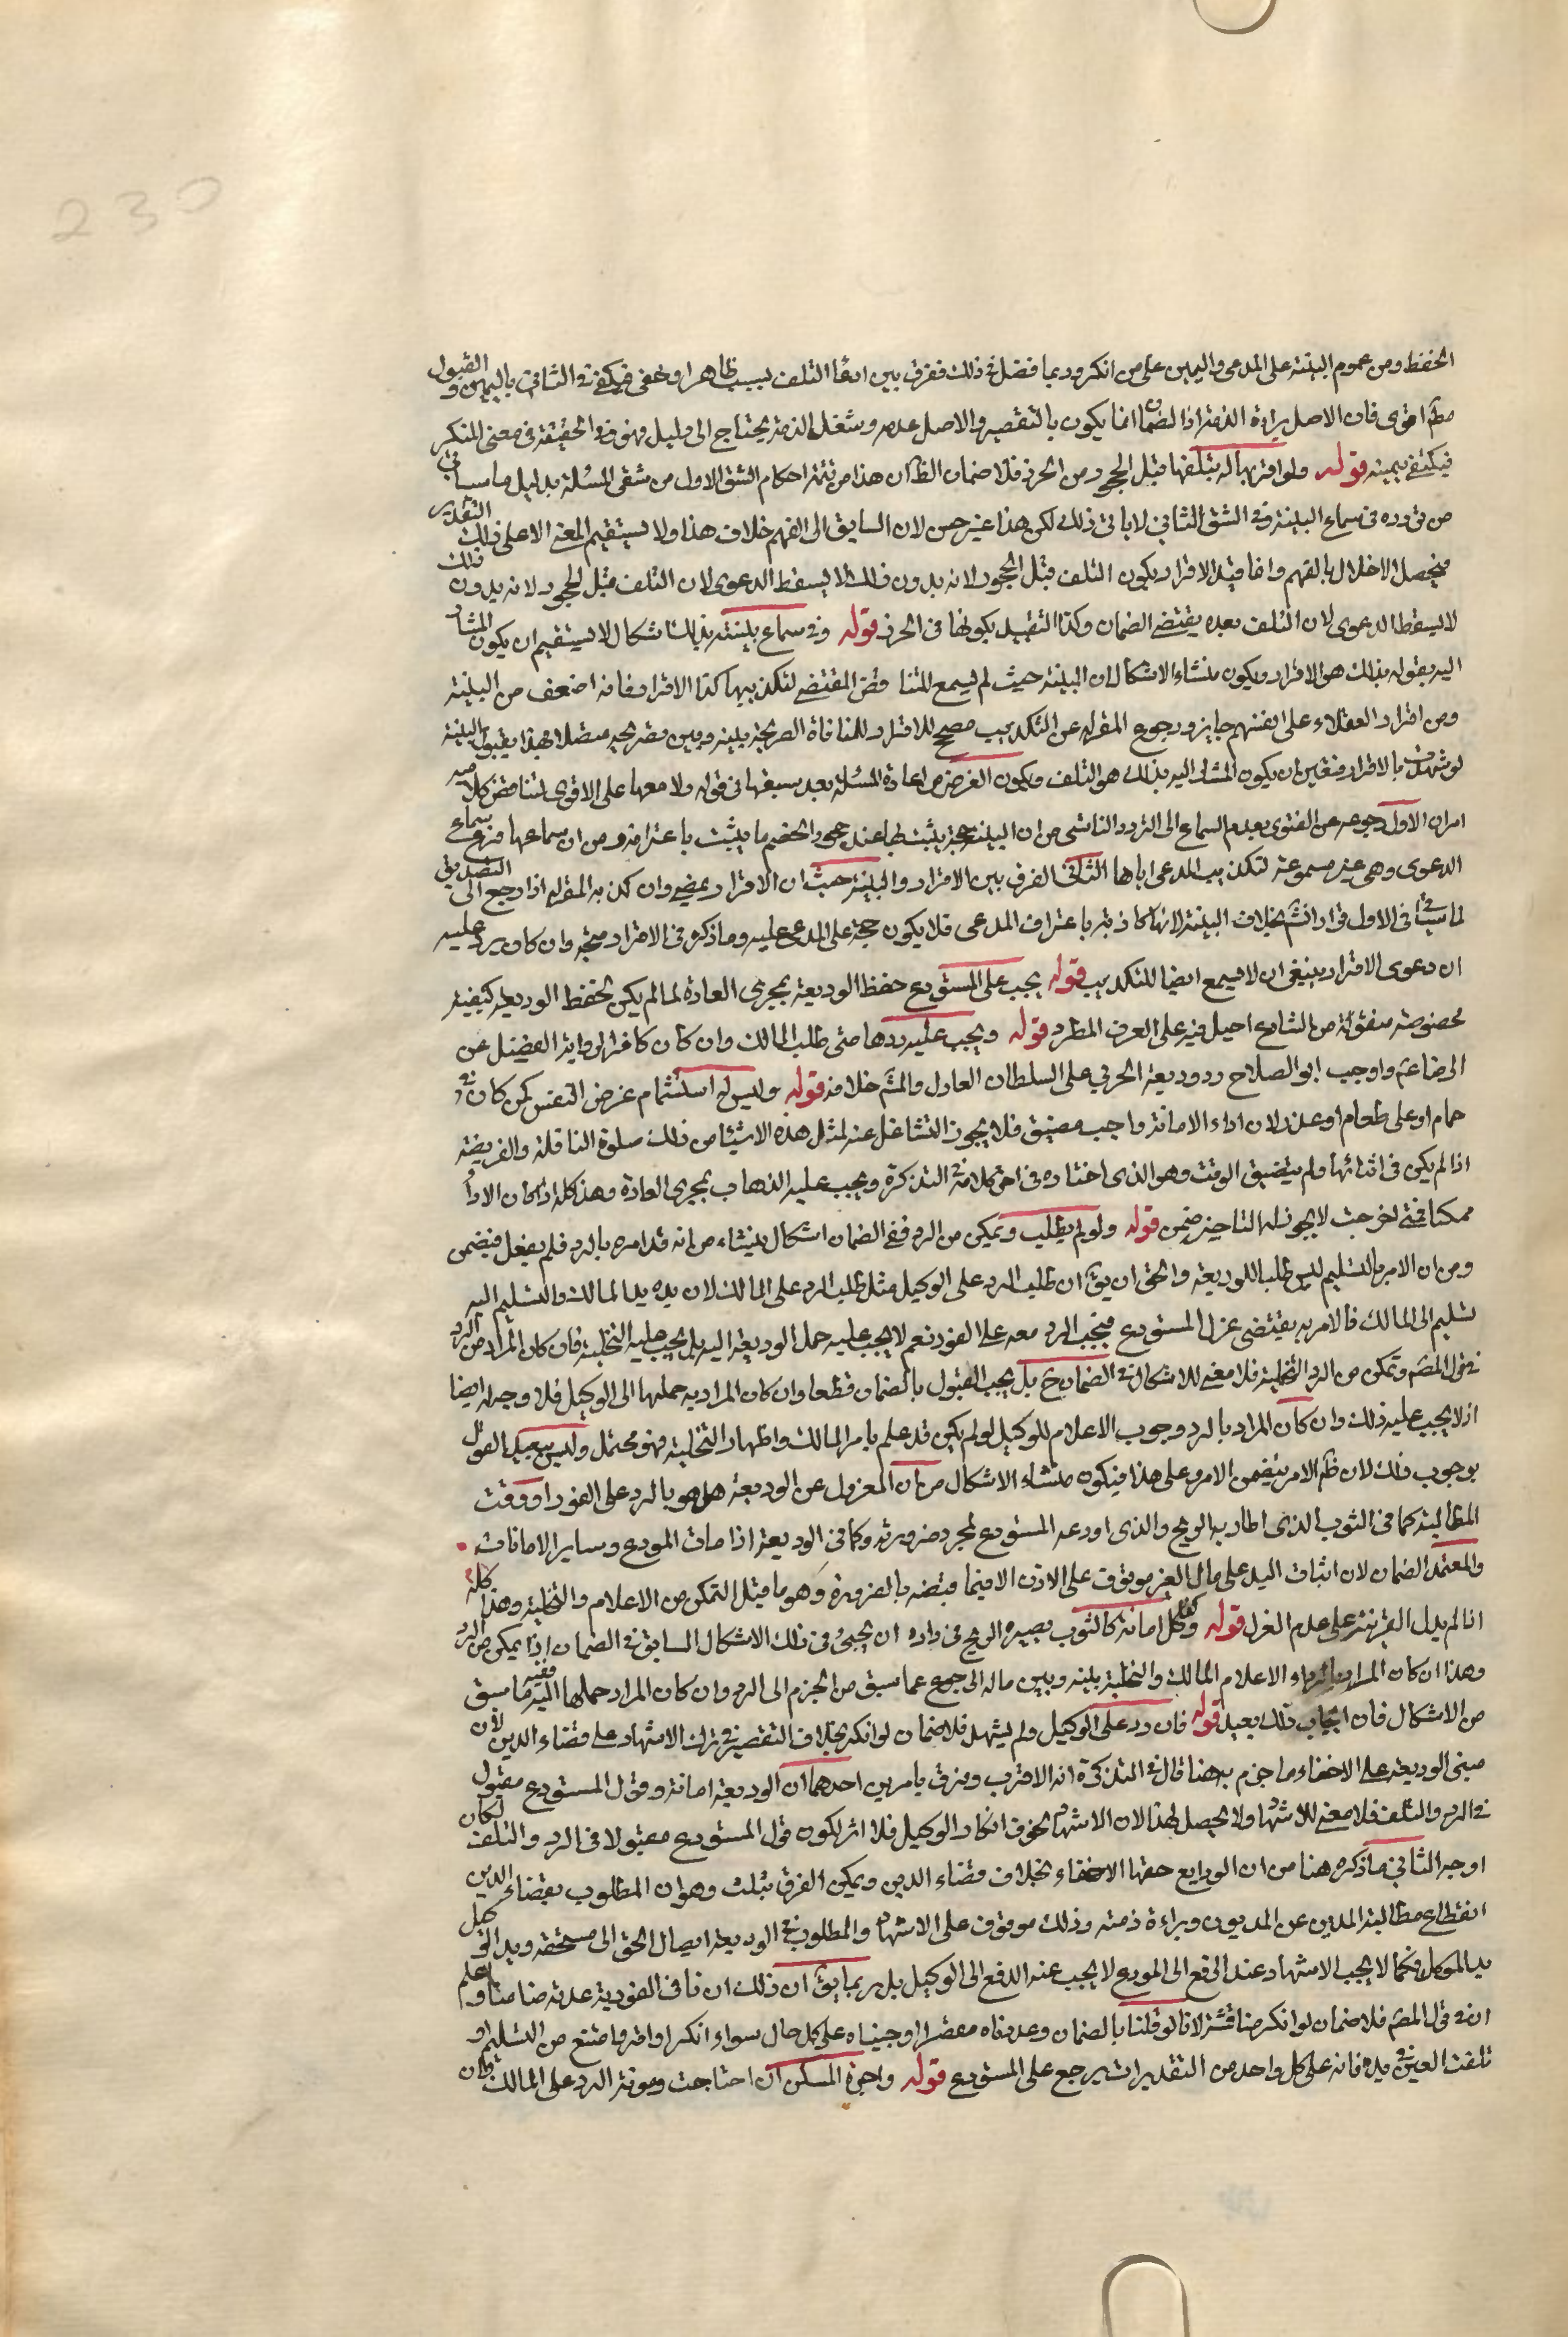 230
الحفظ ومن عموم البينة على المدعى واليمين على من انكر وربما فصل في ذلك ففرق بين ادعا التلف بسبب ظاهر او خفى فيكفى في الثانى باليمين والقبول
مطم اقوى فان الاصل براءة الذمة اذ الضمان انما يكون بالتقصير والاصل عدمه وشغل الذمة يحتاج الى دليل فهو في الحقيقة في معنى المنكر
فيكتفى بيمينه قوله ولو اقر بها له بتلفها قبل الجحود من الحرز فلا ضمان الظ ان هذا من تتمة احكام الشق الاول من شقى المسئلة بدليل ما سياتى
من تردده في سماع البينة وفى الشق الثانى لا ياتى ذلك لكن هذا غير حسن لان السابق الى الفهم خلاف هذا ولا يستقيم المعنى الا على ذلك التقدير
فيحصل الاخلال بالفهم وانما قيد الاقرار بكون التلف قبل الجحود لانه بدون ذلك لا يسقط الدعوى لان التلف قبل الجحود لانه بدون ذلك
لا يسقط الدعوى لان التلف بعده يقتضى الضمان وكذا التقييد بكونها في الحرز قوله وفى سماع بينته بذلك اشكال لا يستقيم ان يكون المشار
اليه بقوله بذلك هو الاقرار ويكون منشاء الاشكال ان البينة حيث لم يسمع للتنا قض المقتضى لتكذيبها كذا الاقرار فانه اضعف من البينة
ومن اقرار العقلاء على انفسهم جايز ورجوع المقر له عن التكذيب مصحح للاقرار للمنافاة الصريحة بينه وبين تصريحه متصلا بهذا بقبول البينة
لو شهدت بالاقرار فتعين ان يكون المشار اليه بذلك هو التلف ويكون الغرض من اعادة المسئلة بعد سبقها في قوله ولا معها على الاقوى لتناقض كلاميه
امران الاول رجوعه عن الفتوى بعدم السماع الى التردد الناشى من ان البينة حجة يثبت بها عند جحود الخصم ما يثبت باعترافه ومن ان سماعها فرع سماع
الدعوى وهى غير مسموعة لتكذيب المدعى اياها الثانى الفرق بين الاقرار والبينة حيث ان الاقرار يمضى وان كذبه المقر له اذا رجع الى التصديق
لما سياتى في الاول اقرار انش بخلاف البينة لانها كاذبة باعتراف المدعى فلا يكون حجة على المدعى عليه وما ذكره في الاقرار متجه وان كان يرد عليه
ان دعوى الاقرار ينبغى ان لا يسمع ايضا للتكذيب قوله يجب على المستودع حفظ الوديعة بمجرى العادة لما لم يكن لحفظ الوديعة كيفية
مخصوصة منقولة من الشارع احيل فيه على العرف المطرد قوله ويجب عليه ردها متى طلب المالك وان كان كافرا لرواية الفضيل عن
الرضا ع واوجب ابو الصلاح رد وديعة الحربى على السلطان العادل والمش خلافه قوله وليس له استتمام غرض النفس كمن كان في
حمام او على طعام او عذر لان اداء الامانة واجب مضيق فلا يجوز التشاغل عنه لمثل هذه الاشيا من ذلك صلوة النافلة والفريضة
اذا لم يكن في اثنائها ولم يتضيق الوقت وهو الذى اختاره في اخر كلامه في التذكرة ويجب عليه الذهاب بمجرى العادة وهذا كله اذا كان الادا
ممكنا فمتى اخر حيث لا يجوز له التاخير ضمن قوله ولو لم يطلب وتمكن من الرد ففى الضمان اشكال ينشاء من انه قد امره بالرد فلم يفعل فيضمن
ومن ان الامر بالتسليم ليس طلبا للوديعة والحق ان يق ان طلب الرد على الوكيل مثل طلب الرد على المالك لان يده يد المالك والتسليم اليه
تسليم الى المالك فالامر به يقتضى عزل المستودع فيجب الرد معه على الفور نعم لا يجب عليه حمل الوديعة اليه بل يجب عليه التخلية فان كان المراد من الرد
في قول المصم وتمكن من الرد التخلية فلا معنى للاشكال في الضمان ح بل يجب القبول بالضمان قطعا وان كان المراد به حملها الى الوكيل فلا وجه له ايضا
اذ لا يجب عليه ذلك وان كان المراد بالرد وجوب الاعلام للوكيل لو لم يكن قد علم بامر المالك واظهار التخلية فهو محتمل وليس ببعيد القول
بوجوب ذلك لان ظم الامر يتضمن الامر وعلى هذا فيكون منشاء الاشكال من ان المعزول عن الوديعة هل هو بالرد على الفور او وقت
المطالبة كما في الثوب الذى اطار به الريح والذى اودعه المستودع لمجرد ضرورته وكما في الوديعة اذا مات المودع وساير الامانات
والمعتمد الضمان لان اثبات اليد على مال الغير موقوف على الاذن الا فيما قبضه بالضرورة وهو ما قبل التمكن من الاعلام والتخلية وهذا كله
اذا لم يدل القرينة على عدم العزل قوله وكذا كل امانة كالثوب يصيره الريح في داره ان يجئ في ذلك الاشكال السابق في الضمان اذا يمكن من الرد
وهذا ان كان المراد بالرد الاعلام المالك والتخلية بينه وبين ماله الى جمع عما سبق من الجزم الى الرد وان كان المراد حملها اليه ففيه ما سبق
من الاشكال فان ايجاب ذلك بعيد قوله فان رد على الوكيل ولم يشهد فلا ضمان لو انكر بخلاف التقصير في ترك الاشهاد على قضاء الدين لان
مبنى الوديعة على الاخفاء ما جزم به هنا قال في التذكرة انه الاقرب وفرق بامرين احدهما ان الوديعة امانة وقول المستودع مقبول
في الرد والتلف فلا معنى للاشهاد ولا يحصل لهذا لان الاشهاد بخوف انكار الوكيل فلا اثر لكون قول المستودع مقبولا في الرد والتلف لكان
اوجه الثانى ما ذكره هنا من ان الودايع حقها الاخفاء بخلاف قضاء الدين ويمكن الفرق بثلث وهو ان المطلوب بقضاء الدين
انقطاع مطالبة المدين عن المديون وبراءة ذمته وذلك موقوف على الاشهاد والمطلوب في الوديعة ايصال الحق الى مستحقه ويد الوكيل
يد الموكل فكما لا يجب الاشهاد عند الدفع الى المودع لا يجب عند الدفع الى الوكيل بل ربما يق ان ذلك ان نافى الفورية عد به ضامنا واعلم
ان في قول المصم فلا ضمان لو انكر مناقشة لانا لو قلنا بالضمان وعددناه مقصرا اوجبناه على كل حال سواء انكر او اقر وامتنع من التسليم او
تلفت العين في يده فانه على كل واحد من التقديرات يرجع على المستودع قوله واجرة المسكن ان احتاجت ومونة الرد على المالك وان